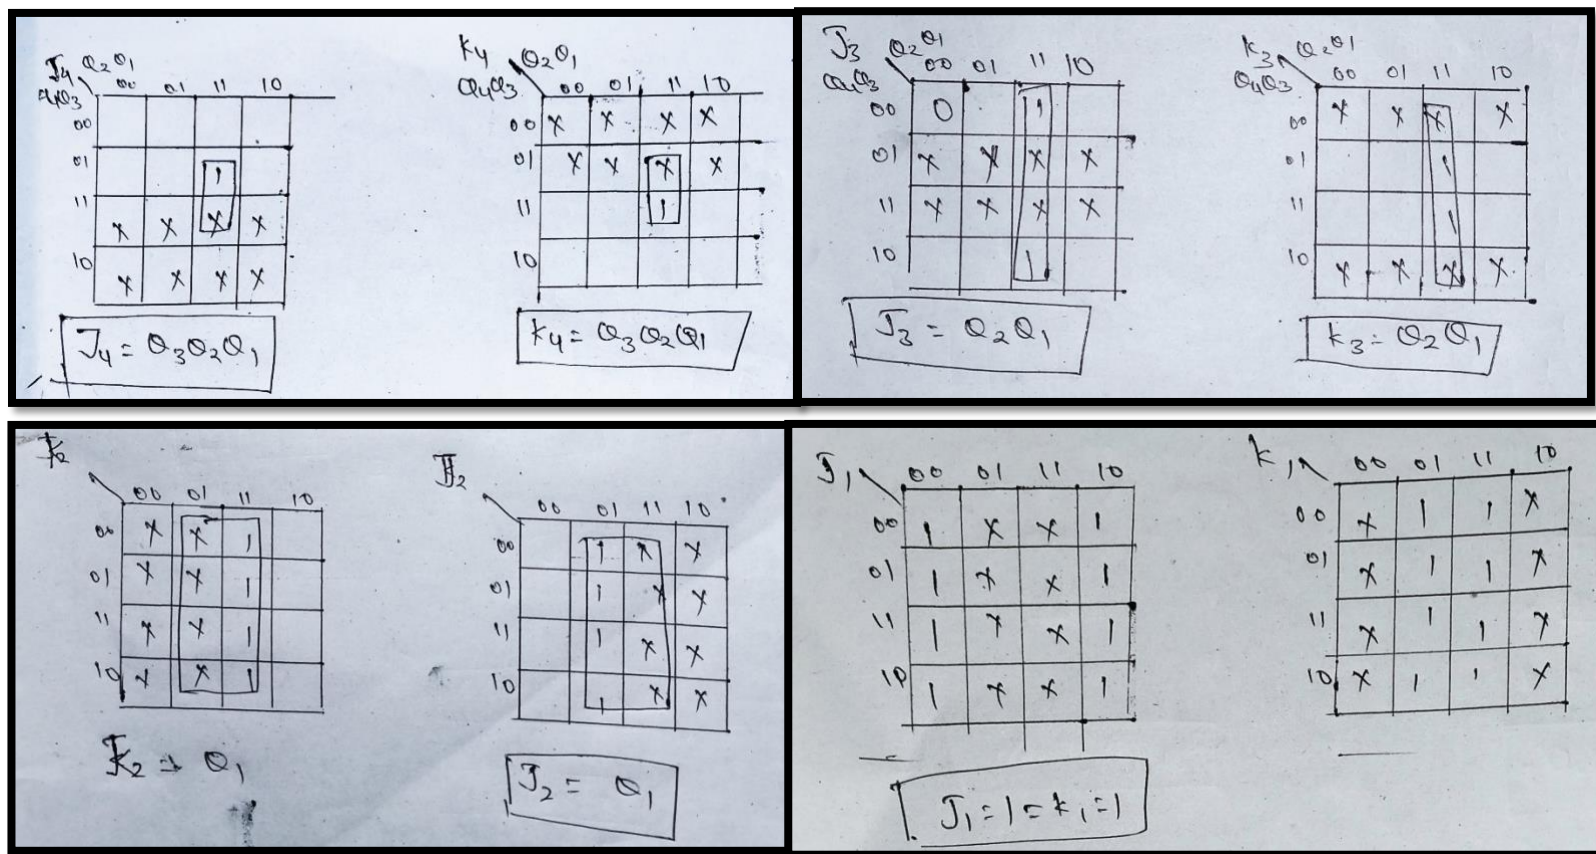 J4 Q2Q1
Q4Q3 00 01 11 10
00
01 1
11 X X X X
10 X X X X
J4 = Q3Q2Q1
K4 Q2Q1
Q4Q3 00 01 11 10
00 X X X X
01 X X X X
11 1
10
K4 = Q3Q2Q1
J3 Q2Q1
Q4Q3 00 01 11 10
00 0 1
01 X X X X
11 X X X X
10 1
J3 = Q2Q1
K3 Q2Q1
Q4Q3 00 01 11 10
00 X X X X
01 1
11 1
10 X X X X
K3 = Q2Q1
K2
00 01 11 10
00 X X 1
01 X X 1
11 X X 1
10 X X 1
K2 = Q1
J2
00 01 11 10
00 1 X X
01 1 X X
11 1 X X
10 1 X X
J2 = Q1
J1 00 01 11 10
00 1 X X 1
01 1 X X 1
11 1 X X 1
10 1 X X 1
J1 = 1 = K1 = 1
K1 00 01 11 10
00 X 1 1 X
01 X 1 1 X
11 X 1 1 X
10 X 1 1 X